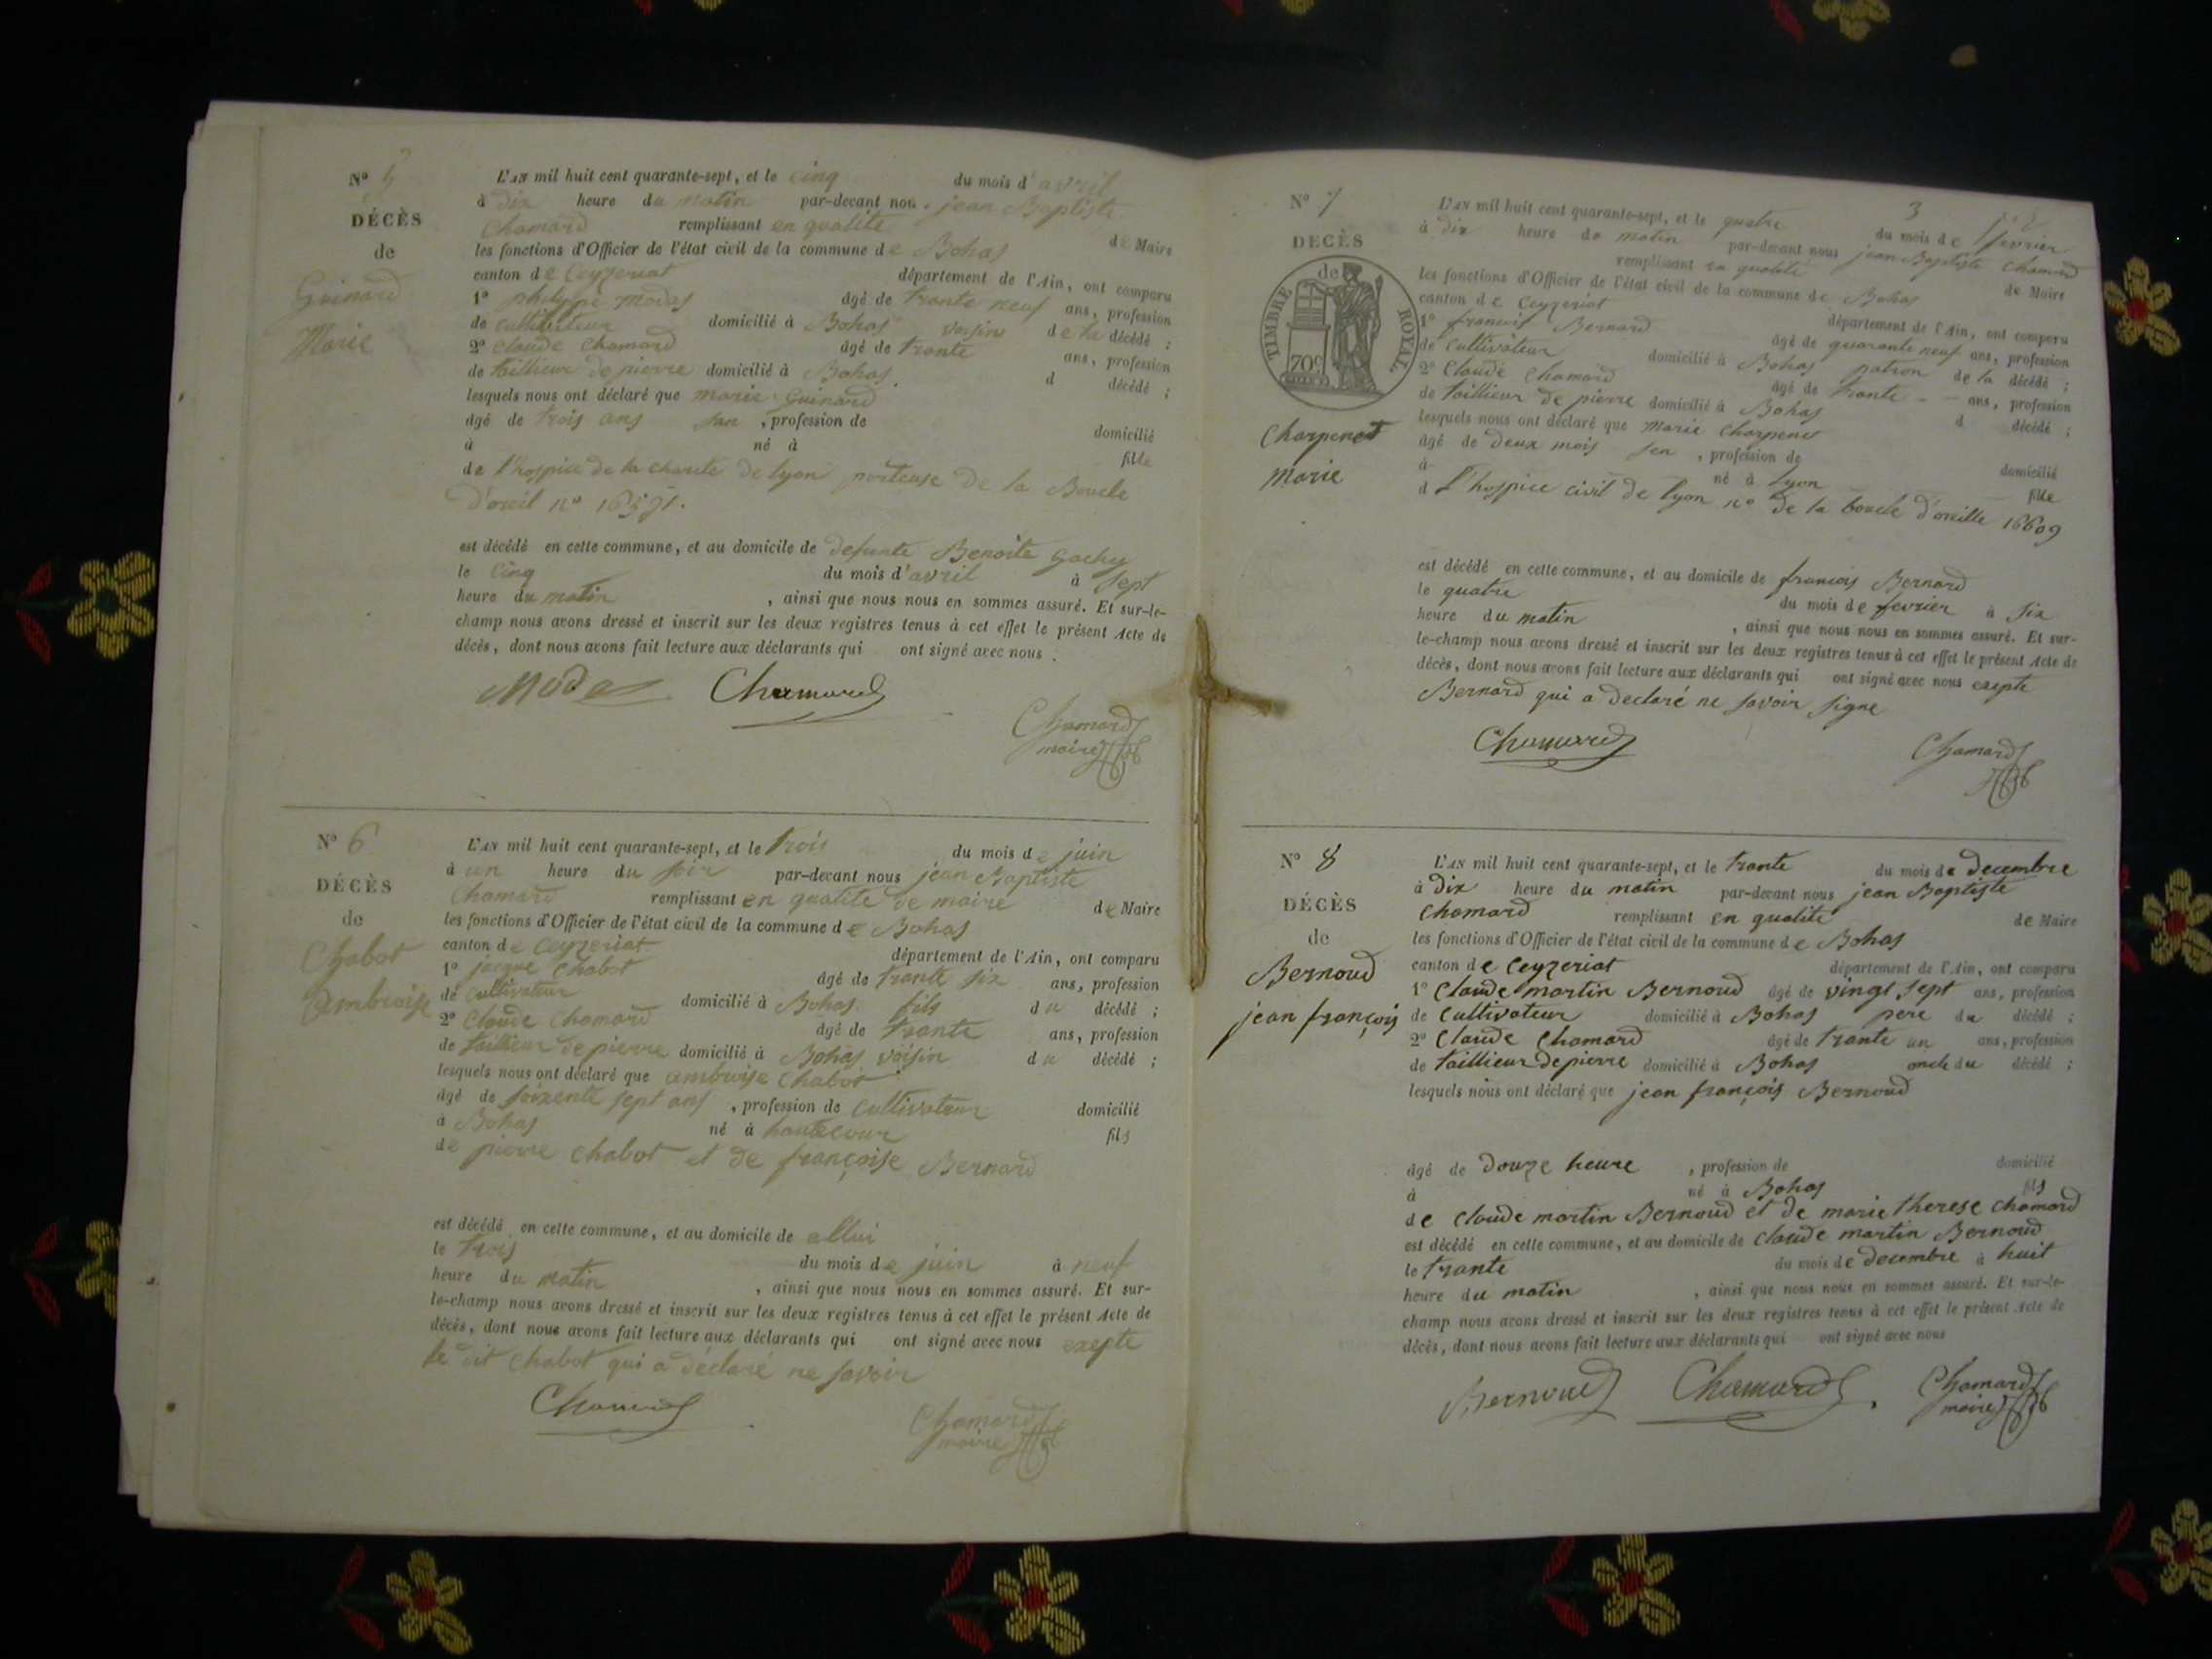 Nº 5
DÉCÈS
de
Guinard
Marie
L'AN mil huit cent quarante-sept, et le cinq du mois d'avril
à dix heure du matin par-devant nous jean Baptiste
Chamard remplissant en qualité de Maire
les fonctions d'Officier de l'état civil de la commune de Bohas
canton de Ceyzeriat département de l'Ain, ont comparu
1º philippe modas âgé de trante neuf ans, profession
de cultivateur domicilié à Bohas voisin de la décédé ;
2º Claude Chamard âgé de trante ans, profession
de taillieur de pierre domicilié à Bohas. d décédé ;
lesquels nous ont déclaré que marie Guinard
âgé de trois ans , profession de domicilié
à né à fille
de l'hospice de la charité de lyon porteuse de la Boucle
d'oreil nº
est décédé en cette commune, et au domicile de defunte Benoite Gachy
le cinq du mois d'avril à sept
heure du matin , ainsi que nous nous en sommes assuré. Et sur-le-
champ nous avons dressé et inscrit sur les deux registres tenus à cet effet le présent Acte de
décès, dont nous avons fait lecture aux déclarants qui ont signé avec nous.
Chamard
Chamard
maire
Nº 6
DÉCÈS
de
Chabot
ambroise
L'AN mil huit cent quarante-sept, et le trois du mois de juin
à un heure du soir par-devant nous jean Baptiste
Chamard remplissant en qualité de maire de Maire
les fonctions d'Officier de l'état civil de la commune de Bohas
canton de Ceyzeriat département de l'Ain, ont comparu
1º jacque Chabot âgé de trante six ans, profession
de cultivateur domicilié à Bohas fils du décédé ;
2º Claude Chamard âgé de trante ans, profession
de taillieur de pierre domicilié à Bohas voisin du décédé ;
lesquels nous ont déclaré que ambroise Chabot
âgé de soixente sept ans , profession de cultivateur domicilié
à Bohas né à hautecour fils
de pierre chabot et de françoise Bernard
est décédé en cette commune, et au domicile de allui
le trois du mois de juin à neuf
heure du matin , ainsi que nous nous en sommes assuré. Et sur-
le-champ nous avons dressé et inscrit sur les deux registres tenus à cet effet le présent Acte de
décès, dont nous avons fait lecture aux déclarants qui ont signé avec nous exepte
le dit Chabot qui a déclaré ne savoir
Chamard
Chamard
maire
3
Nº 7
DÉCÈS
de
TIMBRE ROYAL
70c
Charpenet
marie
L'AN mil huit cent quarante-sept, et le quatre du mois de fevrier
à dix heure du matin par-devant nous jean Baptiste Chamard
remplissant en qualité de Maire
les fonctions d'Officier de l'état civil de la commune de Bohas
canton de Ceyzeriat département de l'Ain, ont comparu
1º francois Bernard âgé de quarante neuf ans, profession
de cultivateur domicilié à Bohas patron de la décédé ;
2º Claude Chamard âgé de trante ans, profession
de taillieur de pierre domicilié à Bohas d décédé ;
lesquels nous ont déclaré que marie Charpenet
âgé de deux mois , profession de domicilié
à né à lyon fille
d l'hospice civil de lyon nº de la boucle d'oreille 16609
est décédé en cette commune, et au domicile de francois Bernard
le quatre du mois de fevrier à six
heure du matin , ainsi que nous nous en sommes assuré. Et sur-
le-champ nous avons dressé et inscrit sur les deux registres tenus à cet effet le présent Acte de
décès, dont nous avons fait lecture aux déclarants qui ont signé avec nous exepte
Bernard qui a declaré ne savoir signe
Chamard
Chamard
Nº 8
DÉCÈS
de
Bernoud
jean françois
L'AN mil huit cent quarante-sept, et le trante du mois de decembre
à dix heure du matin par-devant nous jean Baptiste
Chamard remplissant en qualité de Maire
les fonctions d'Officier de l'état civil de la commune de Bohas
canton de Ceyzeriat département de l'Ain, ont comparu
1º Claude martin Bernoud âgé de vingt sept ans, profession
de cultivateur domicilié à Bohas pere du décédé ;
2º Claude Chamard âgé de trante un ans, profession
de taillieur de pierre domicilié à Bohas oncle du décédé ;
lesquels nous ont déclaré que jean françois Bernoud
âgé de douze heure , profession de domicilié
à né à Bohas fils
de Claude martin Bernoud et de marie therese chamard
est décédé en cette commune, et au domicile de Claude martin Bernoud
le trante du mois de decembre à huit
heure du matin , ainsi que nous nous en sommes assuré. Et sur-le-
champ nous avons dressé et inscrit sur les deux registres tenus à cet effet le présent Acte de
décès, dont nous avons fait lecture aux déclarants qui ont signé avec nous
Bernoud Chamard
Chamard
maire